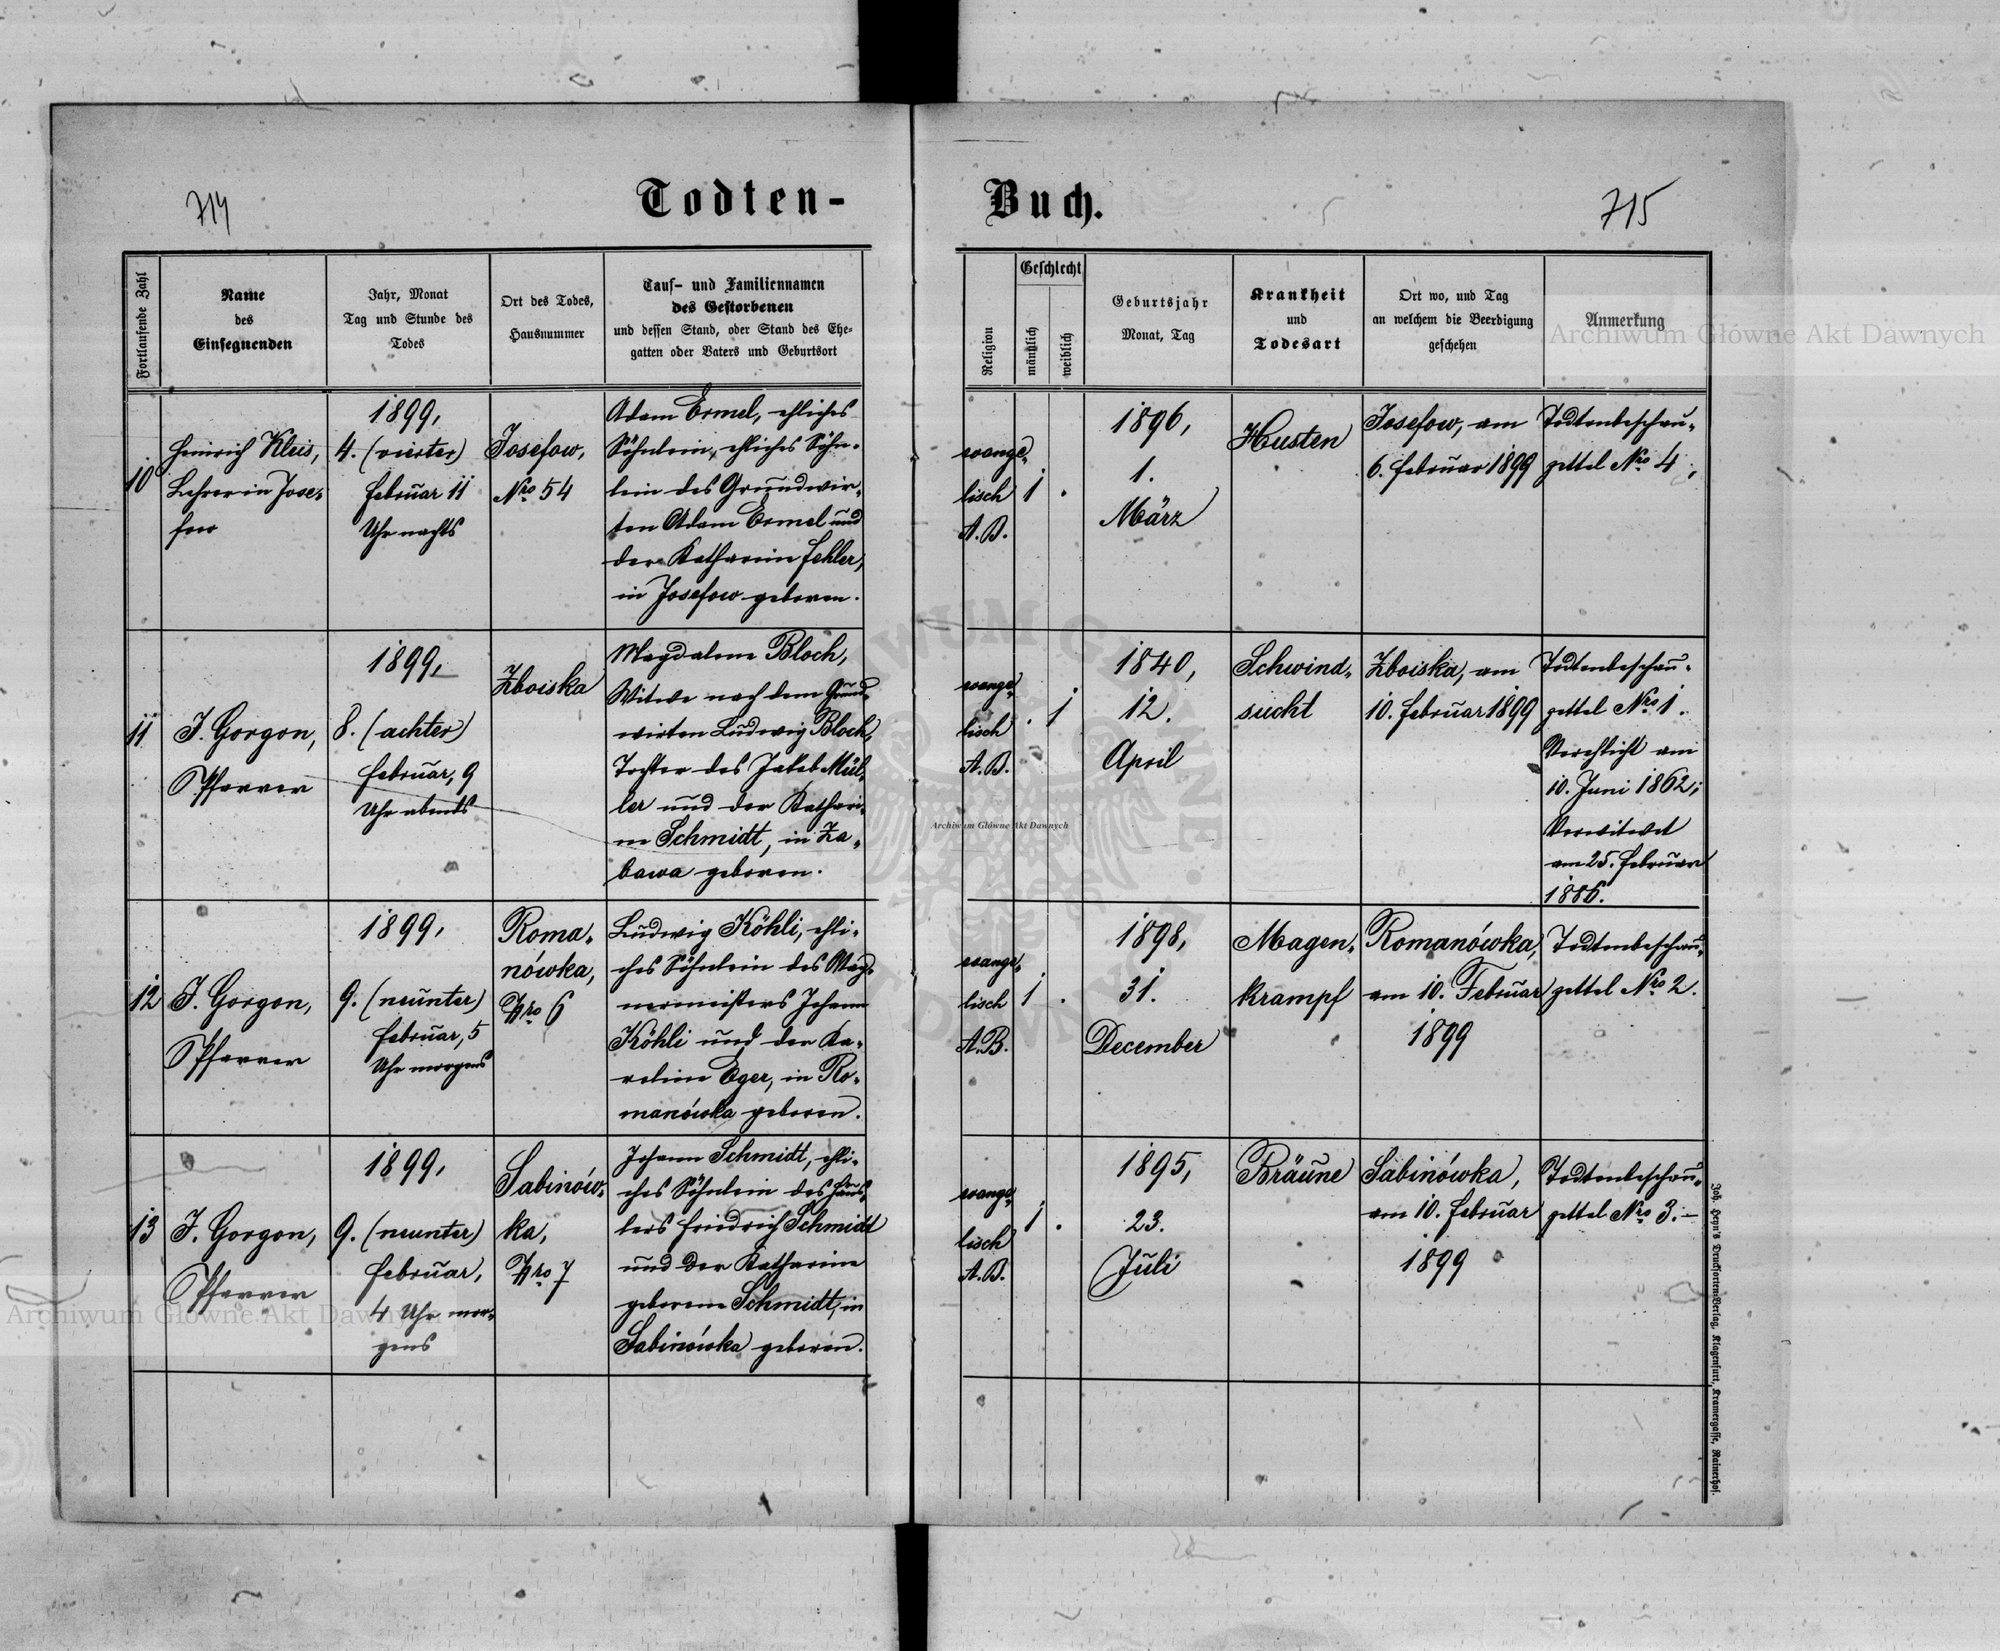 714
Todten-
Buch.
715
Fortlaufende Zahl
Name
des
Einsegnenden
Jahr, Monat
Tag und Stunde des
Todes
Ort des Todes,
Hausnummer
Tauf- und Familiennamen
des Gestorbenen
und dessen Stand, oder Stand des Ehe-
gatten oder Vaters und Geburtsort
Religion
Geschlecht
männlich
weiblich
Geburtsjahr
Monat, Tag
Krankheit
und
Todesart
Ort wo, und Tag
an welchem die Beerdigung
geschehen
Anmerkung
10
Heinrich Kleis,
Lehrer in Jose-
fow
1899,
4. (vierter)
Februar 11
Uhr nachts
Josefow,
Nro 54
Adam Ermel, ehliches
Söhnlein, ehliches Söhn-
lein des Grundwir-
ten Adam Ermel und
der Katharina Fehler,
in Josefow geboren.
evange-
lisch
A. B.
1 .
1896,
1.
März
Husten
Josefow, am
6. Februar 1899
Todtenbeschau-
zettel Nro 4.
11
J. Gorgon,
Pfarrer
1899,
8. (achter)
Februar, 9
Uhr abends
Zboiska
Magdalena Bloch,
Witwe nach dem Grund-
wirten Ludwig Bloch,
Tochter des Jakob Mül-
ler und der Kathari-
na Schmidt, in Za-
bawa geboren.
evange-
lisch
A. B.
. 1
1840,
12.
April
Schwind-
sucht
Zboiska, am
10. Februar 1899
Todtenbeschau-
zettel Nro 1.
Verehlicht am
10. Juni 1862;
Verwitwet
am 25. Februar
1886.
12
J. Gorgon,
Pfarrer
1899,
9. (neunter)
Februar, 5
Uhr morgens
Roma-
nówka,
Nro 6
Ludwig Köhli, ehli-
ches Söhnlein des Wag-
nermeisters Johann
Köhli und der Ka-
rolina Eger, in Ro-
manówka geboren.
evange-
lisch
A. B.
1 .
1898,
31.
December
Magen-
krampf
Romanówka,
am 10. Februar
1899
Todtenbeschau-
zettel Nro 2.
13
J. Gorgon,
Pfarrer
1899,
9. (neunter)
Februar,
4 Uhr mor-
gens
Sabinów-
ka,
Nro 7
Johann Schmidt, ehli-
ches Söhnlein des Häus-
lers Friedrich Schmidt
und der Katharina
geborene Schmidt, in
Sabinówka geboren.
evange-
lisch
A. B.
1 .
1895,
23.
Juli
Bräune
Sabinówka,
am 10. Februar
1899
Todtenbeschau-
zettel Nro 3.
Joh. Heyn's Drucksorten-Verlag, Klagenfurt, Kramergasse, Rainerhof.
Archiwum Główne Akt Dawnych
Archiwum Główne Akt Dawnych
Archiwum Główne Akt Dawnych